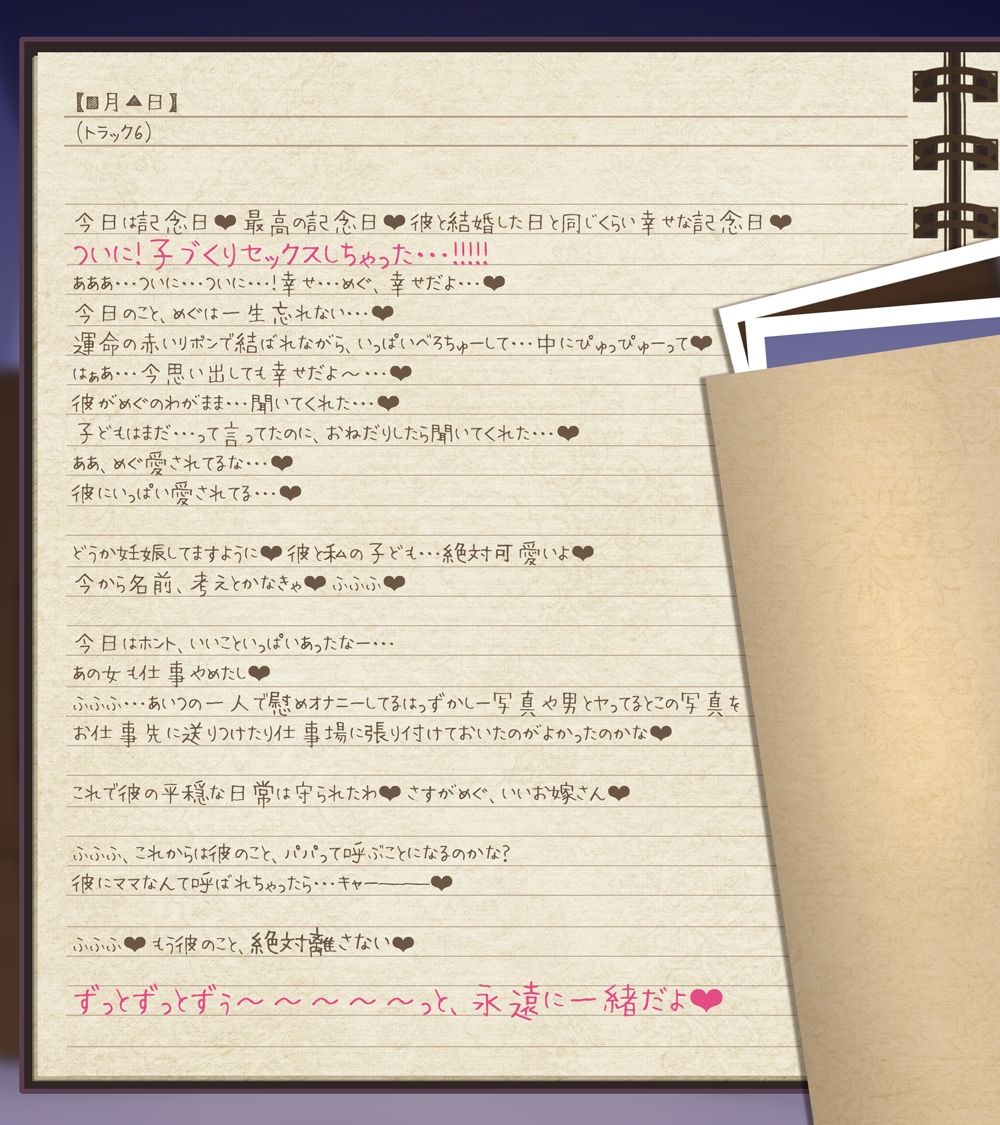 【■月▲日】
(トラック6)
今日は記念日♥最高の記念日♥彼と結婚した日と同じくらい幸せな記念日♥
ついに!子づくりセックスしちゃった・・・!!!!!
あああ・・・ついに・・・ついに・・・!幸せ・・・めぐ、幸せだよ・・・♥
今日のこと、めぐは一生忘れない・・・♥
運命の赤いリボンで結ばれながら、いっぱいべろちゅーして・・・中にぴゅっぴゅーって♥
はぁあ・・・今思い出しても幸せだよ～・・・♥
彼がめぐのわがまま・・・聞いてくれた・・・♥
子どもはまだ・・・って言ってたのに、おねだりしたら聞いてくれた・・・♥
ああ、めぐ愛されてるな・・・♥
彼にいっぱい愛されてる・・・♥
どうか妊娠してますように♥彼と私の子ども・・・絶対可愛いよ♥
今から名前、考えとかなきゃ♥ふふふ♥
今日はホント、いいこといっぱいあったなー・・・
あの女も仕事やめたし♥
ふふふ・・・あいつの一人で慰めオナニーしてるはっずかしー写真や男とヤってるとこの写真を
お仕事先に送りつけたり仕事場に張り付けておいたのがよかったのかな♥
これで彼の平穏な日常は守られたわ♥さすがめぐ、いいお嫁さん♥
ふふふ、これからは彼のこと、パパって呼ぶことになるのかな?
彼にママなんて呼ばれちゃったら・・・キャー―――♥
ふふふ♥もう彼のこと、絶対離さない♥
ずっとずっとずぅ～～～～～っと、永遠に一緒だよ♥